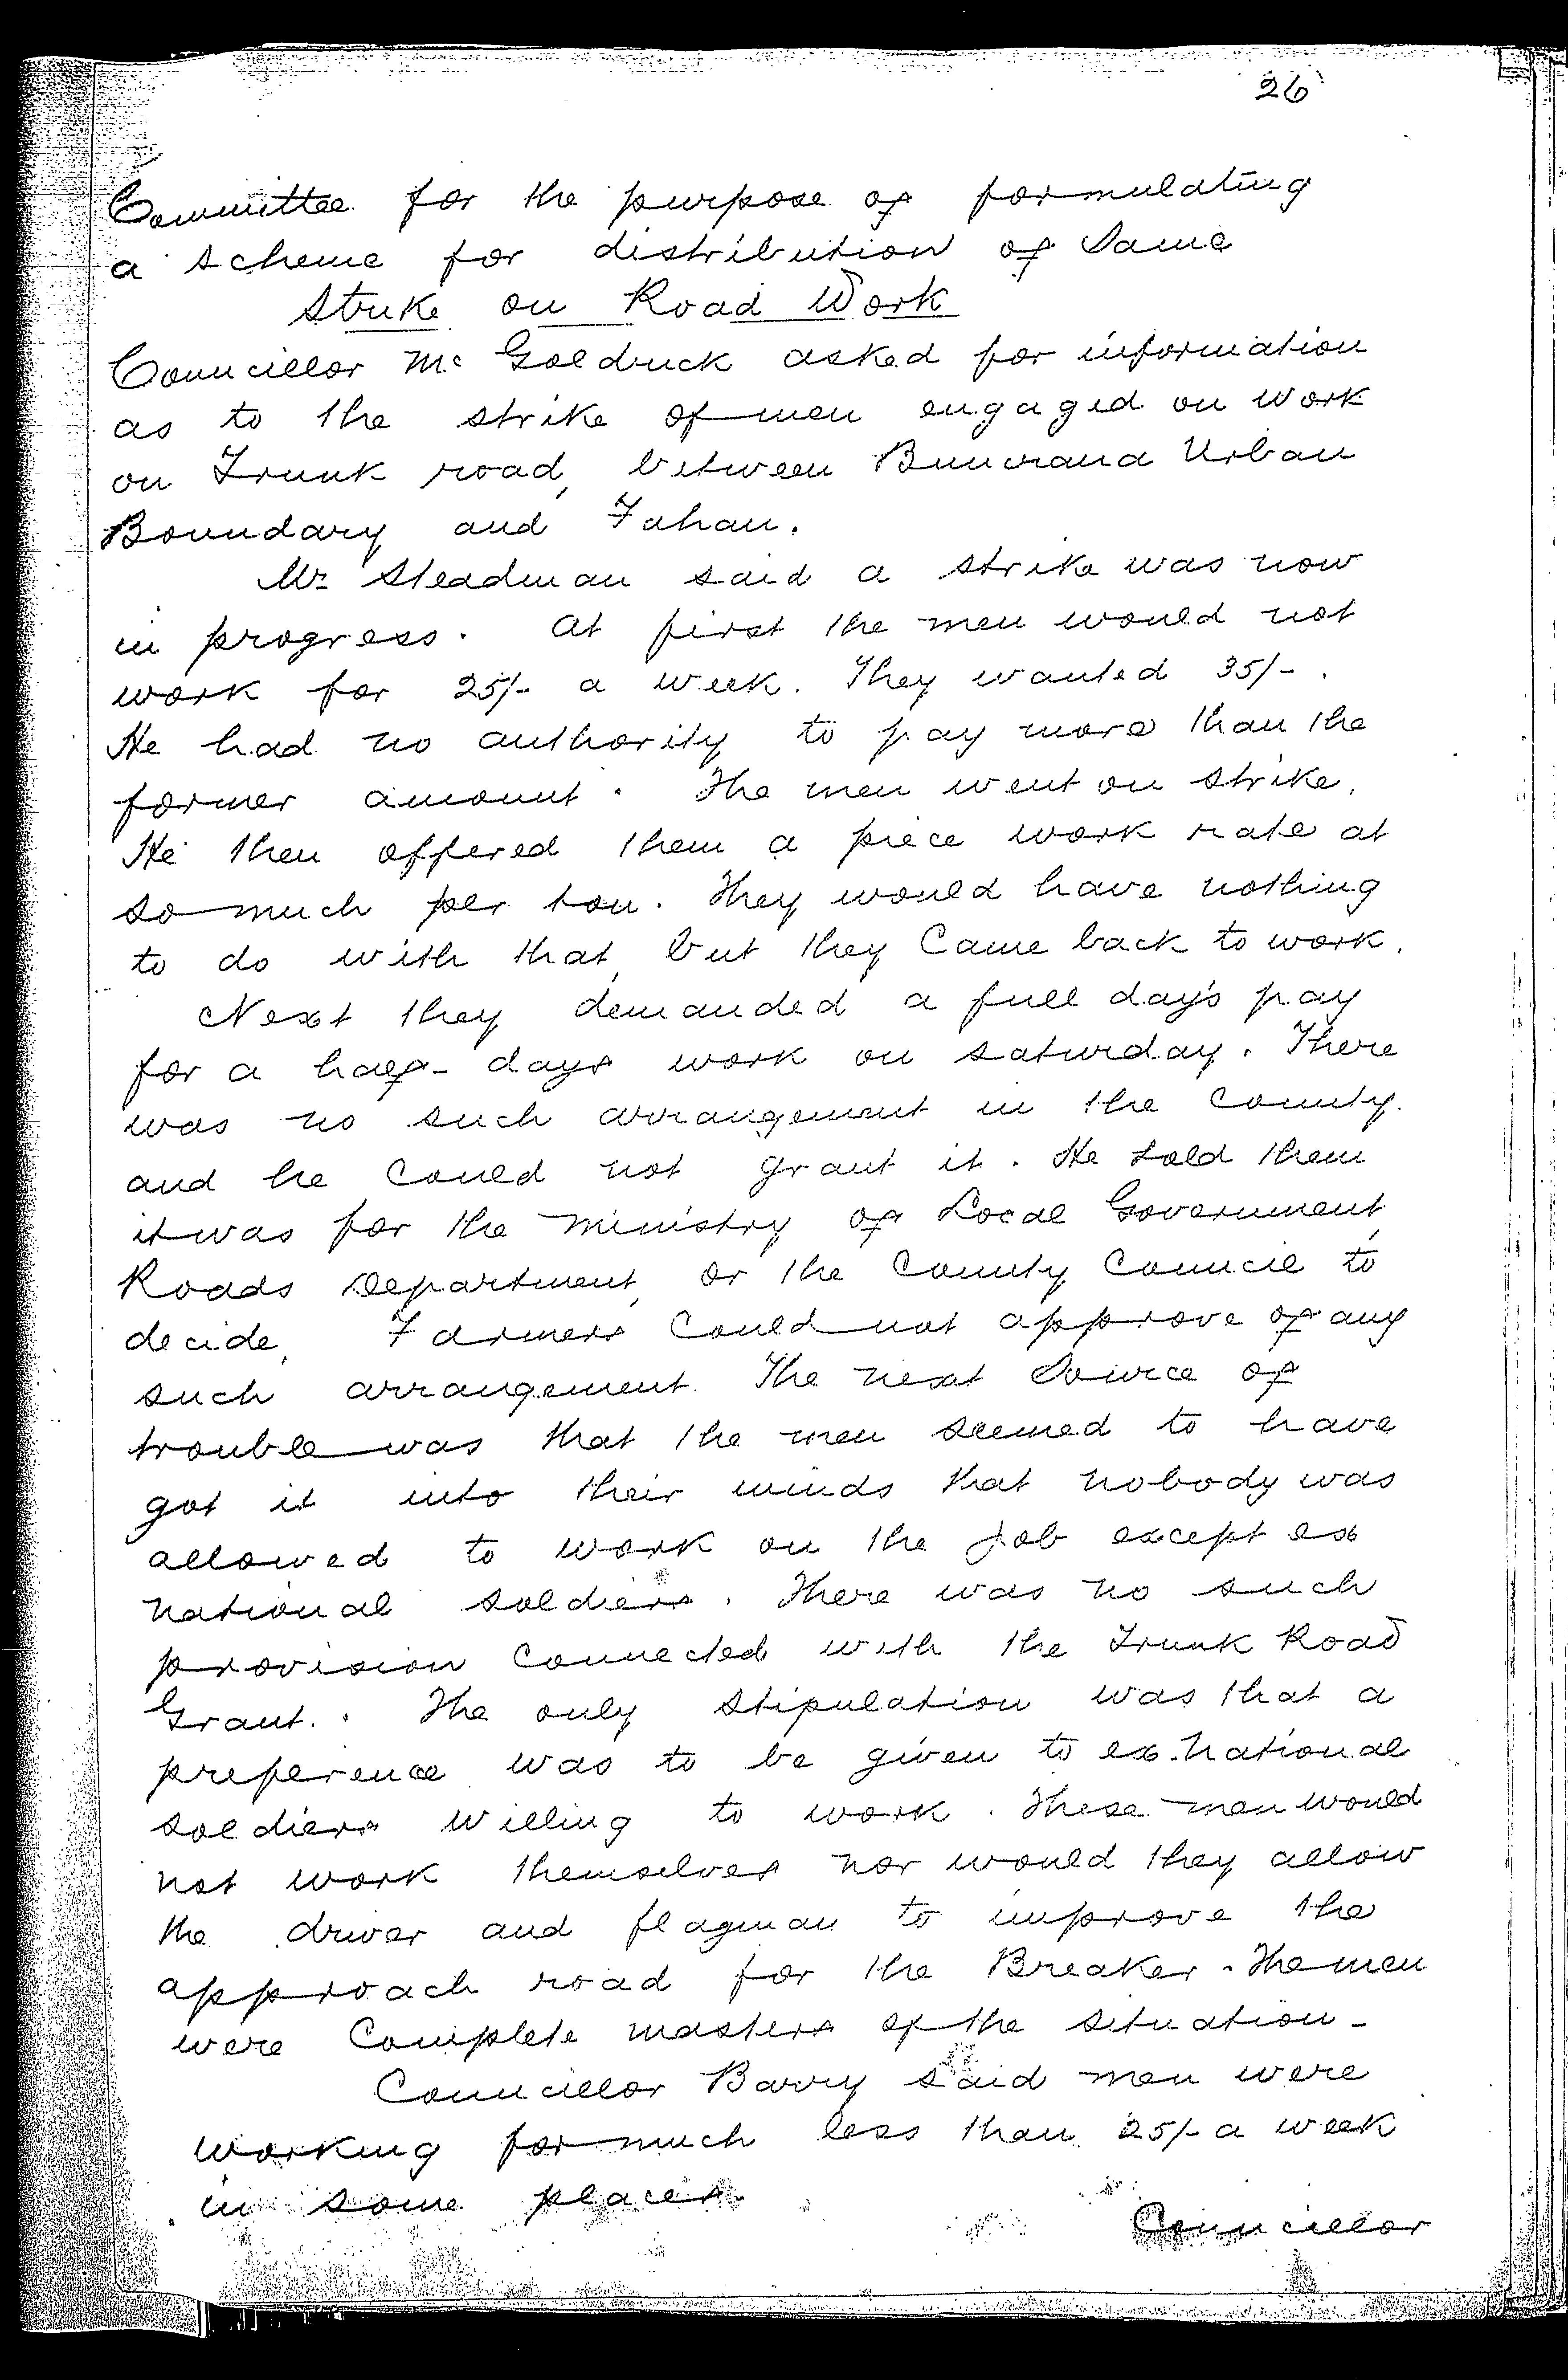 26
Committee for the purpose of formulating
a scheme for distribution of same
Strike on Road Work
Councillor Mc Goldrick asked for information
as to the strike of men engaged on work
on Trunk road, between Buncrana Urban
Boundary and Fahan.
Mr Steadman said a strike was now
in progress. At first the men would not
work for 25/- a week. They wanted 35/-.
He had no authority to pay more than the
former amount. The men went on strike.
He then offered them a piece work rate at
so much per ton. They would have nothing
to do with that, but they came back to work.
Next they demanded a full day's pay
for a half-days work on saturday. There
was no such arrangement in the County.
and he could not grant it. He told them
it was for the ministry of Local Government,
Roads Department, or the County Council to
decide, Farmers could not approve of any
such arrangement. The next source of
trouble was that the men seemed to have
got it into their minds that nobody was
allowed to work on the job except ex
national soldiers. There was no such
provision connected with the Trunk Road
Grant. The only stipulation was that a
preference was to be given to ex.national
soldiers willing to work. These men would
not work themselves nor would they allow
the driver and flagman to improve the
approach road for the Breaker. The men
were complete masters of the situation -
Councillor Barry said men were
working for much less than 25/- a week
in some places.
Councillor